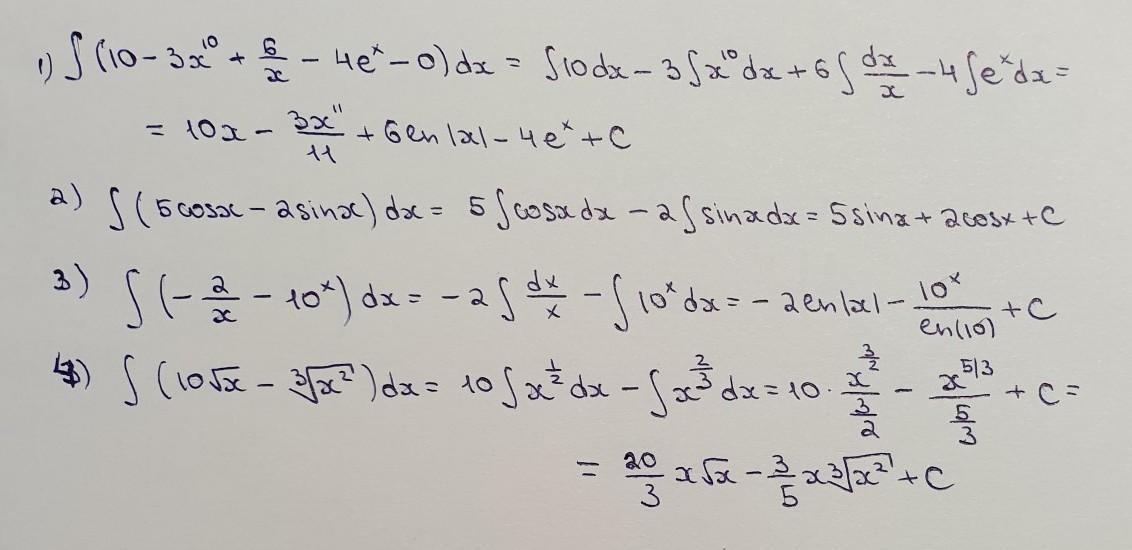 1) ∫(10 - 3x¹⁰ + 6/x - 4eˣ - 0)dx = ∫10dx - 3∫x¹⁰dx + 6∫dx/x - 4∫eˣdx =
= 10x - 3x¹¹/11 + 6ln|x| - 4eˣ + C
2) ∫(5cosx - 2sinx)dx = 5∫cosxdx - 2∫sinxdx = 5sinx + 2cosx + C
3) ∫(-2/x - 10ˣ)dx = -2∫dx/x - ∫10ˣdx = -2ln|x| - 10ˣ/ln(10) + C
4) ∫(10√x - ∛(x²))dx = 10∫x^(1/2)dx - ∫x^(2/3)dx = 10 · x^(3/2)/(3/2) - x^(5/3)/(5/3) + C =
= 20/3 x√x - 3/5 x∛(x²) + C